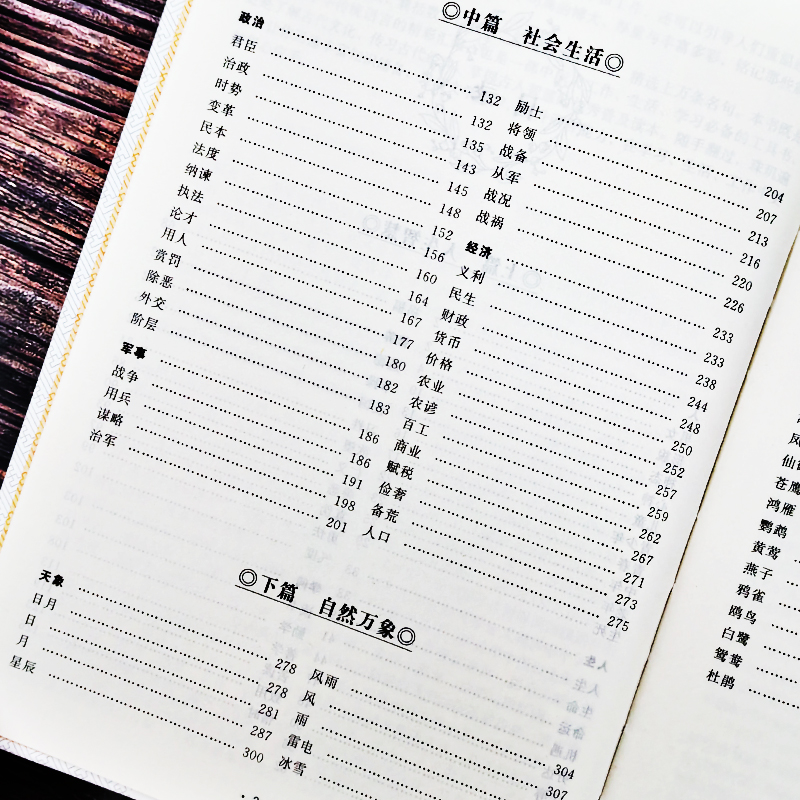 ◎中篇 社会生活◎
政治 132
君臣 132
治政 135
时势 143
变革 145
民本 148
法度 152
纳谏 156
执法 160
论才 164
用人 167
赏罚 177
除恶 180
外交 182
阶层 183
军事 186
战争 186
用兵 191
谋略 198
治军 201
励士 204
将领 207
战备 213
从军 216
战况 220
战祸 226
经济 233
义利 233
民生 238
财政 244
货币 248
价格 250
农业 252
农谚 257
百工 259
商业 262
赋税 267
俭奢 271
备荒 273
人口 275
◎下篇 自然万象◎
天象 278
日月 278
日 281
月 287
星辰 300
风雨 304
风 307
雨
雷电
冰雪
苍鹰
鸿雁
鹦鹉
黄莺
燕子
鸦雀
鸥鸟
白鹭
鸳鸯
杜鹃